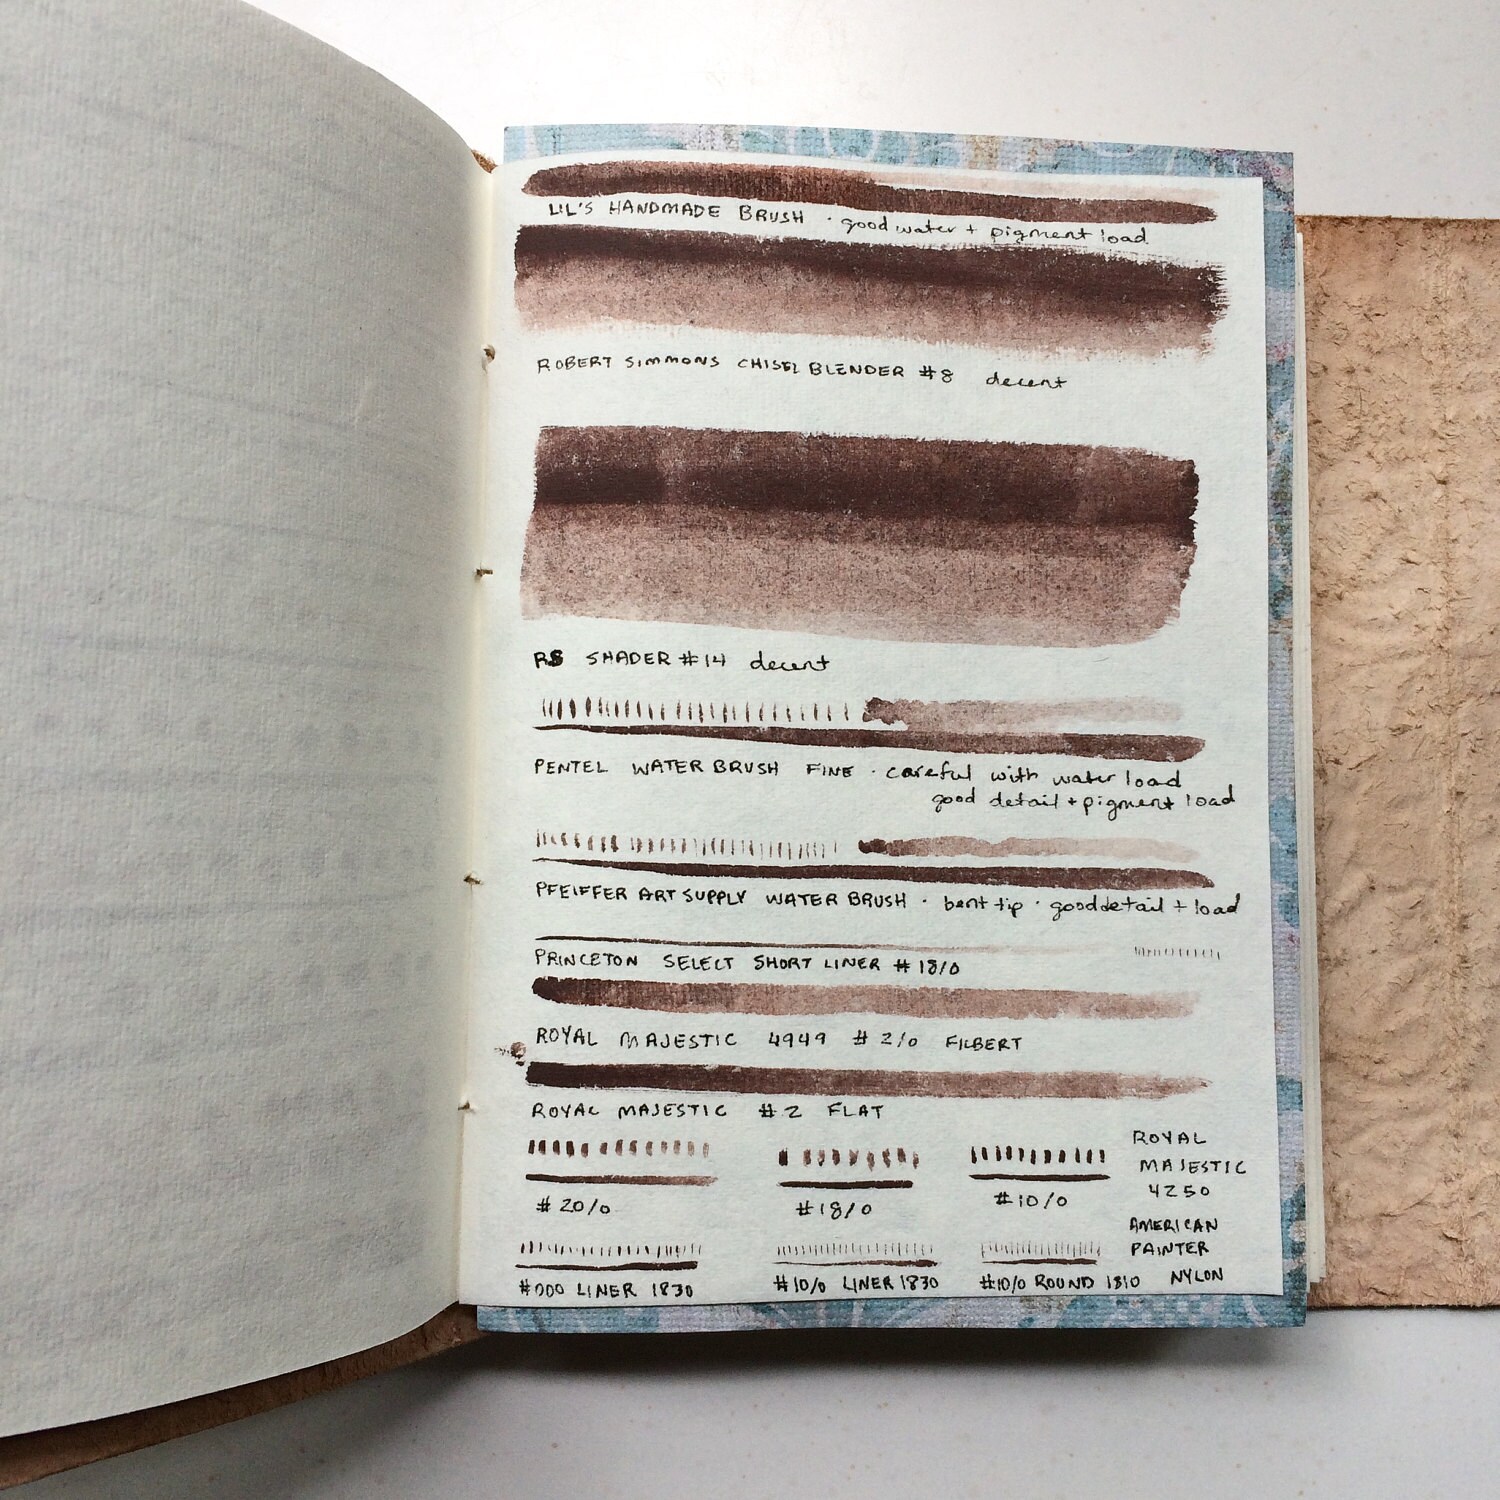 LIL'S HANDMADE BRUSH · good water + pigment load
ROBERT SIMMONS CHISEL BLENDER #8 decent
RS SHADER #14 decent
PENTEL WATER BRUSH FINE · careful with water load
good detail + pigment load
PFEIFFER ART SUPPLY WATER BRUSH · bent tip · good detail + load
PRINCETON SELECT SHORT LINER #18/0
ROYAL MAJESTIC 4949 #2/0 FILBERT
ROYAL MAJESTIC #2 FLAT
#20/0 #18/0 #10/0
ROYAL
MAJESTIC
4250
#000 LINER 1830 #10/0 LINER 1830 #10/0 ROUND 1810
AMERICAN
PAINTER
NYLON